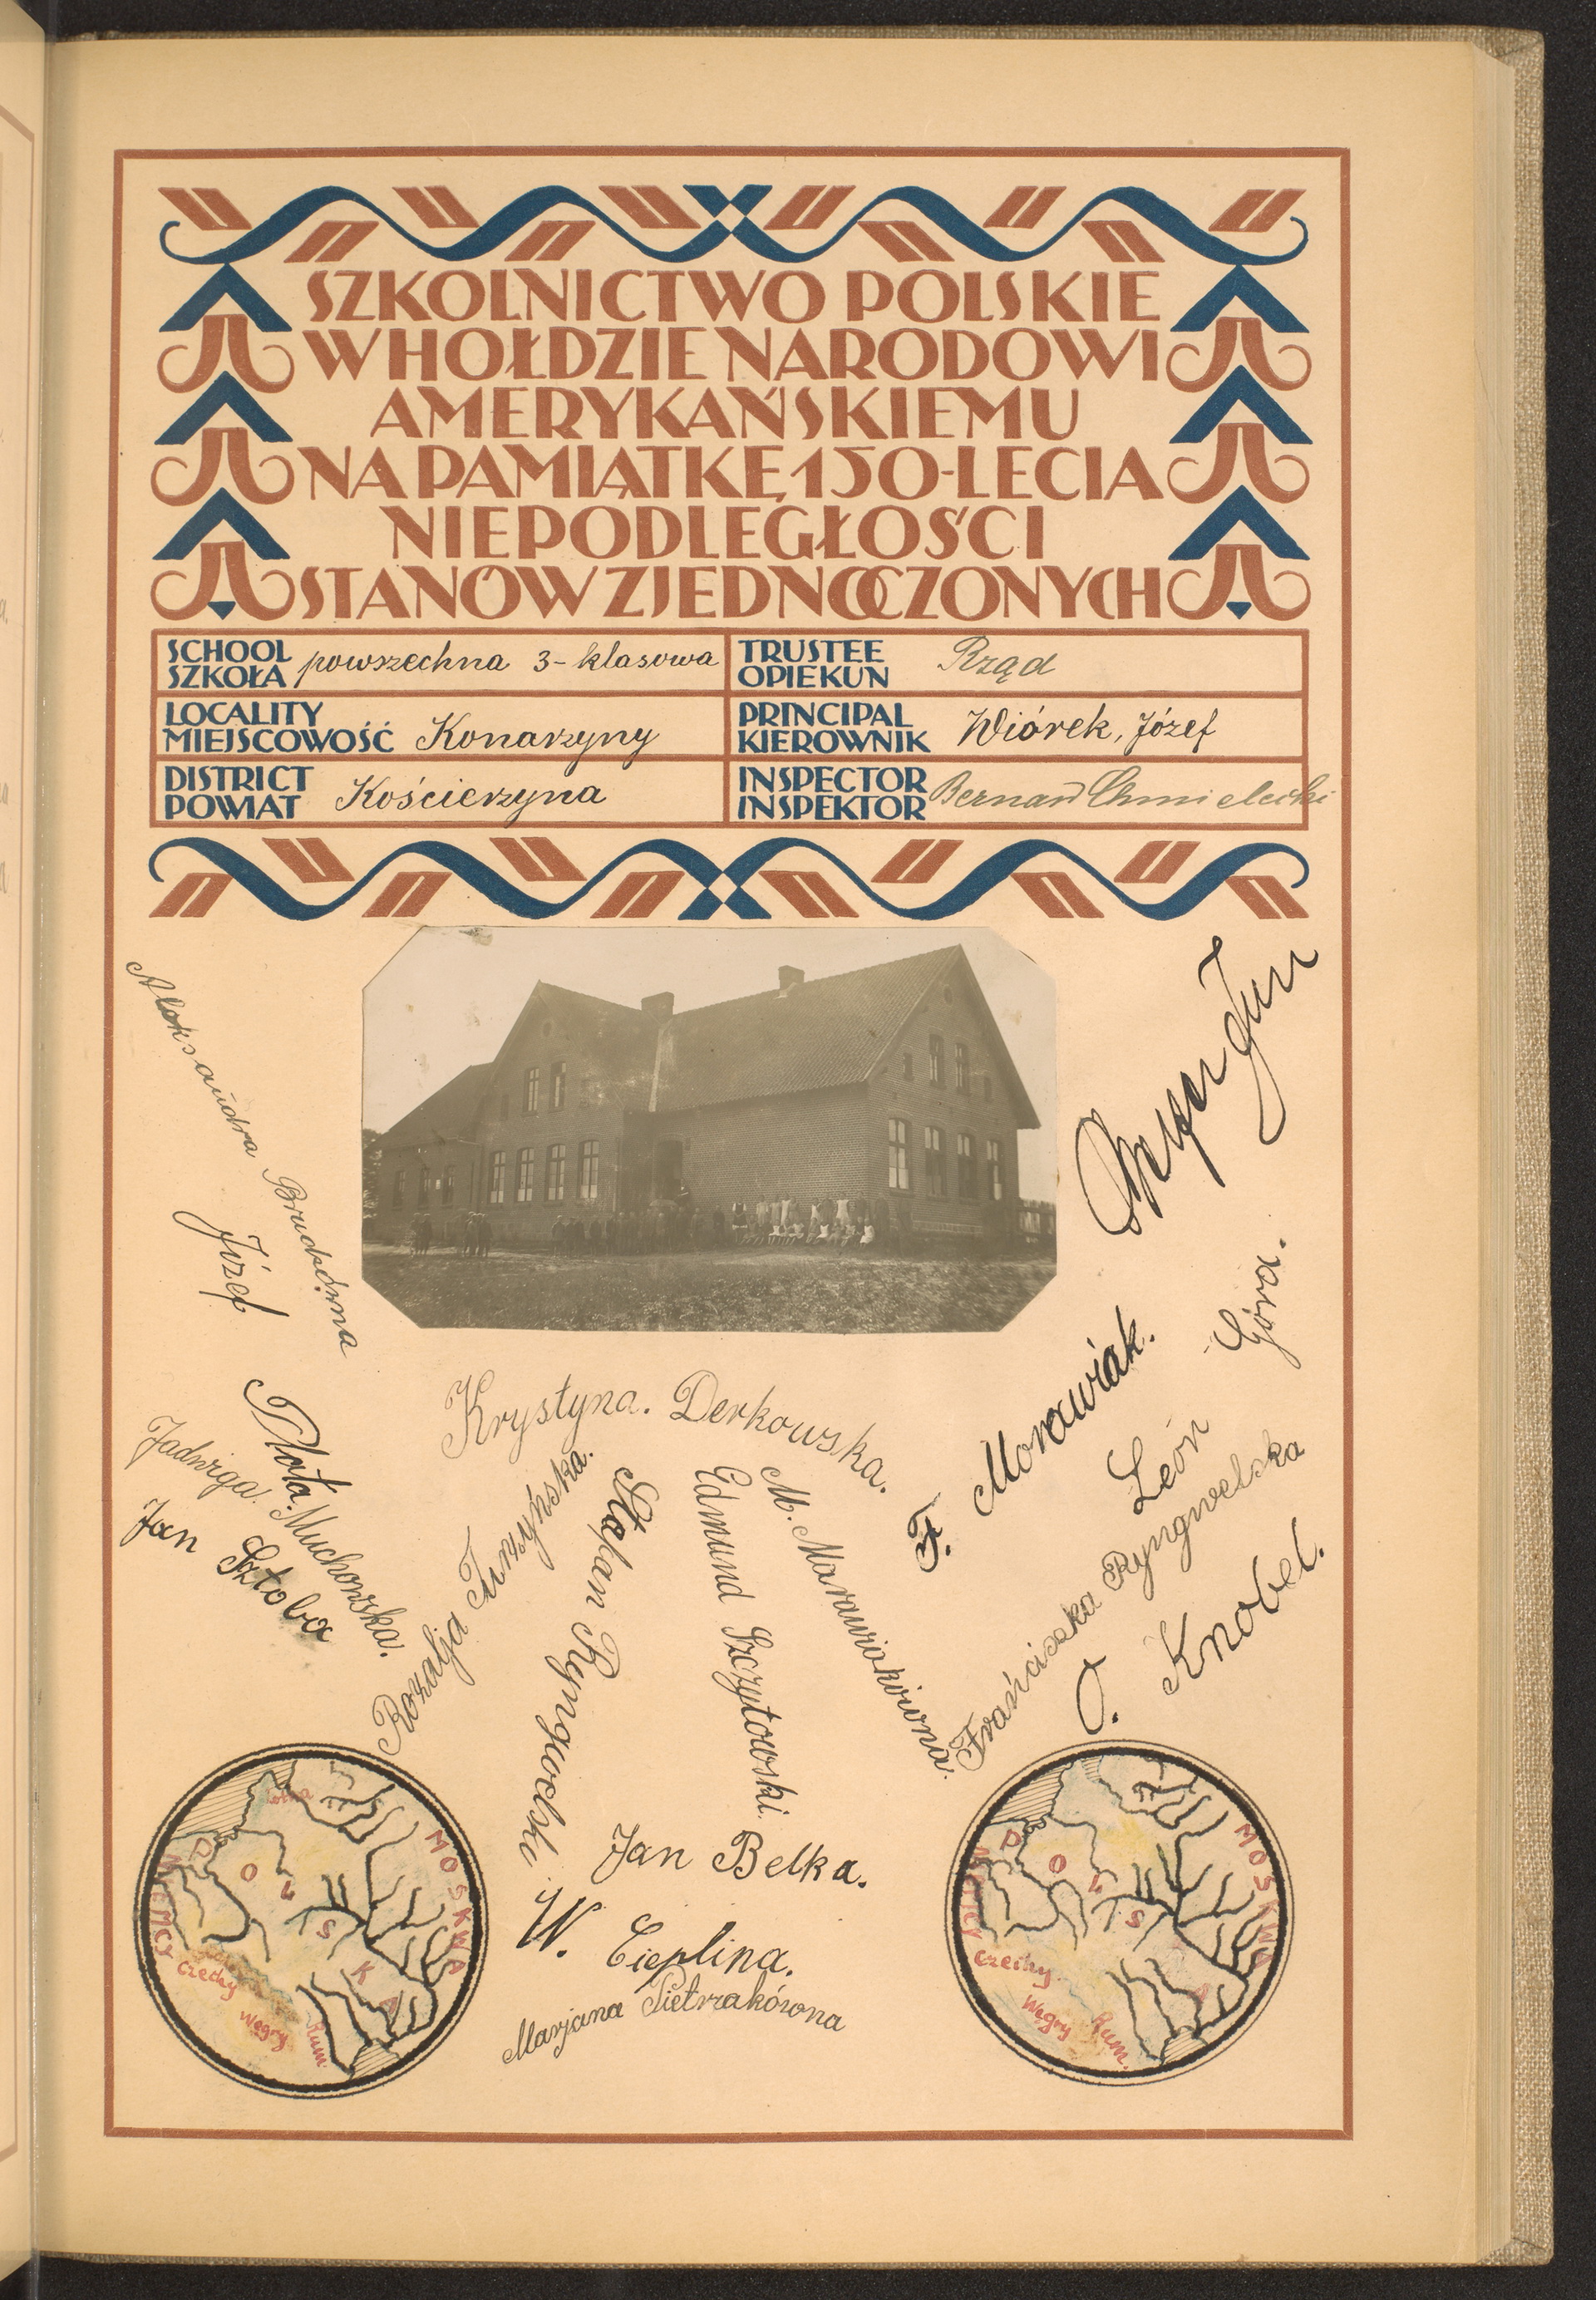 SZKOLNICTWO POLSKIE
W HOŁDZIE NARODOWI
AMERYKAŃSKIEMU
NA PAMIĄTKĘ 150-LECIA
NIEPODLEGŁOŚCI
STANÓW ZJEDNOCZONYCH
SCHOOL
SZKOŁA powszechna 3-klasowa
TRUSTEE
OPIEKUN Rząd
LOCALITY
MIEJSCOWOŚĆ Konarzyny
PRINCIPAL
KIEROWNIK Wiórek, Józef
DISTRICT
POWIAT Kościerzyna
INSPECTOR
INSPEKTOR Bernard Chmielecki
Aleksandra
Józef
Płota.
Góra.
Krystyna. Derkowska.
F. Morawiak.
Jadwiga. Muchowska.
Jan Sztoba
Rozalja Turzyńska.
Stefan Ryngwelski.
Edmund Szczytowski.
M. Marawiakówna.
Frańciszka Ryngwelska
León
O. Knobel.
Jan Belka.
W. Cieplina.
Marjana Pietrzakówna
Łotwa
MOSKWA
POLSKA
NIEMCY
Czechy
Węgry
Rum.
MOSKWA
POLS
NIEMCY
Czechy
Węgry
Rum.